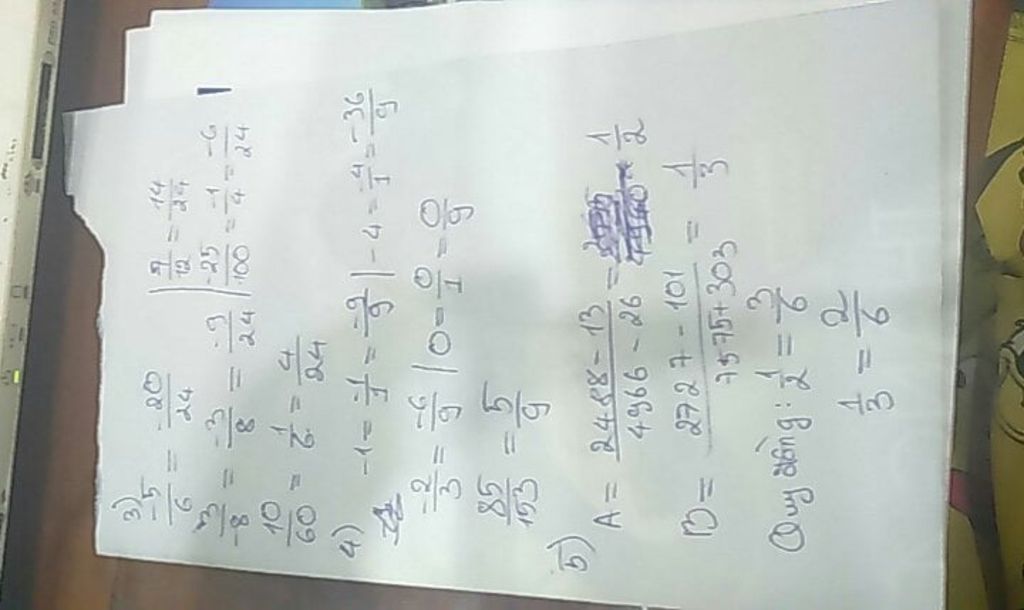 3)
-5/6 = -20/24 | 7/12 = 14/24
3/-8 = -3/8 = -9/24 | -25/100 = -1/4 = -6/24
10/60 = 1/6 = 4/24
4) -1 = -1/1 = -9/9 | -4 = -4/1 = -36/9
-2/3 = -6/9 | 0 = 0/1 = 0/9
85/153 = 5/9
5)
A = 2488 - 13/4966 - 26 = 1/2
B = 2727 - 101/7575 + 303 = 1/3
Quy đồng: 1/2 = 3/6
1/3 = 2/6